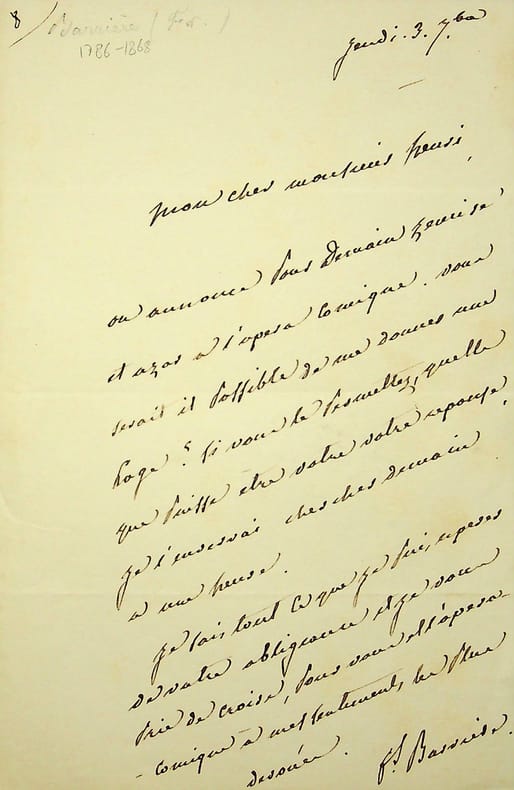 8
Barrière (Fr.)
1786-1868
jeudi. 3. 7bre
mon cher monsieur henri,
on annonce pour Demain Zemire
et azor a l'opera Comique. vous
serait il possible de me donner une
loge ? si vous le permettez, quelle
que puisse etre votre votre reponse,
je l'enverrai chercher demain
a une heure.
je sais tout ce que je puis esperer
de votre obligeance et je vous
prie de croire, pour vous et l'opera-
-comique a mes sentiments les plus
dévoués.
fs. Barrière.